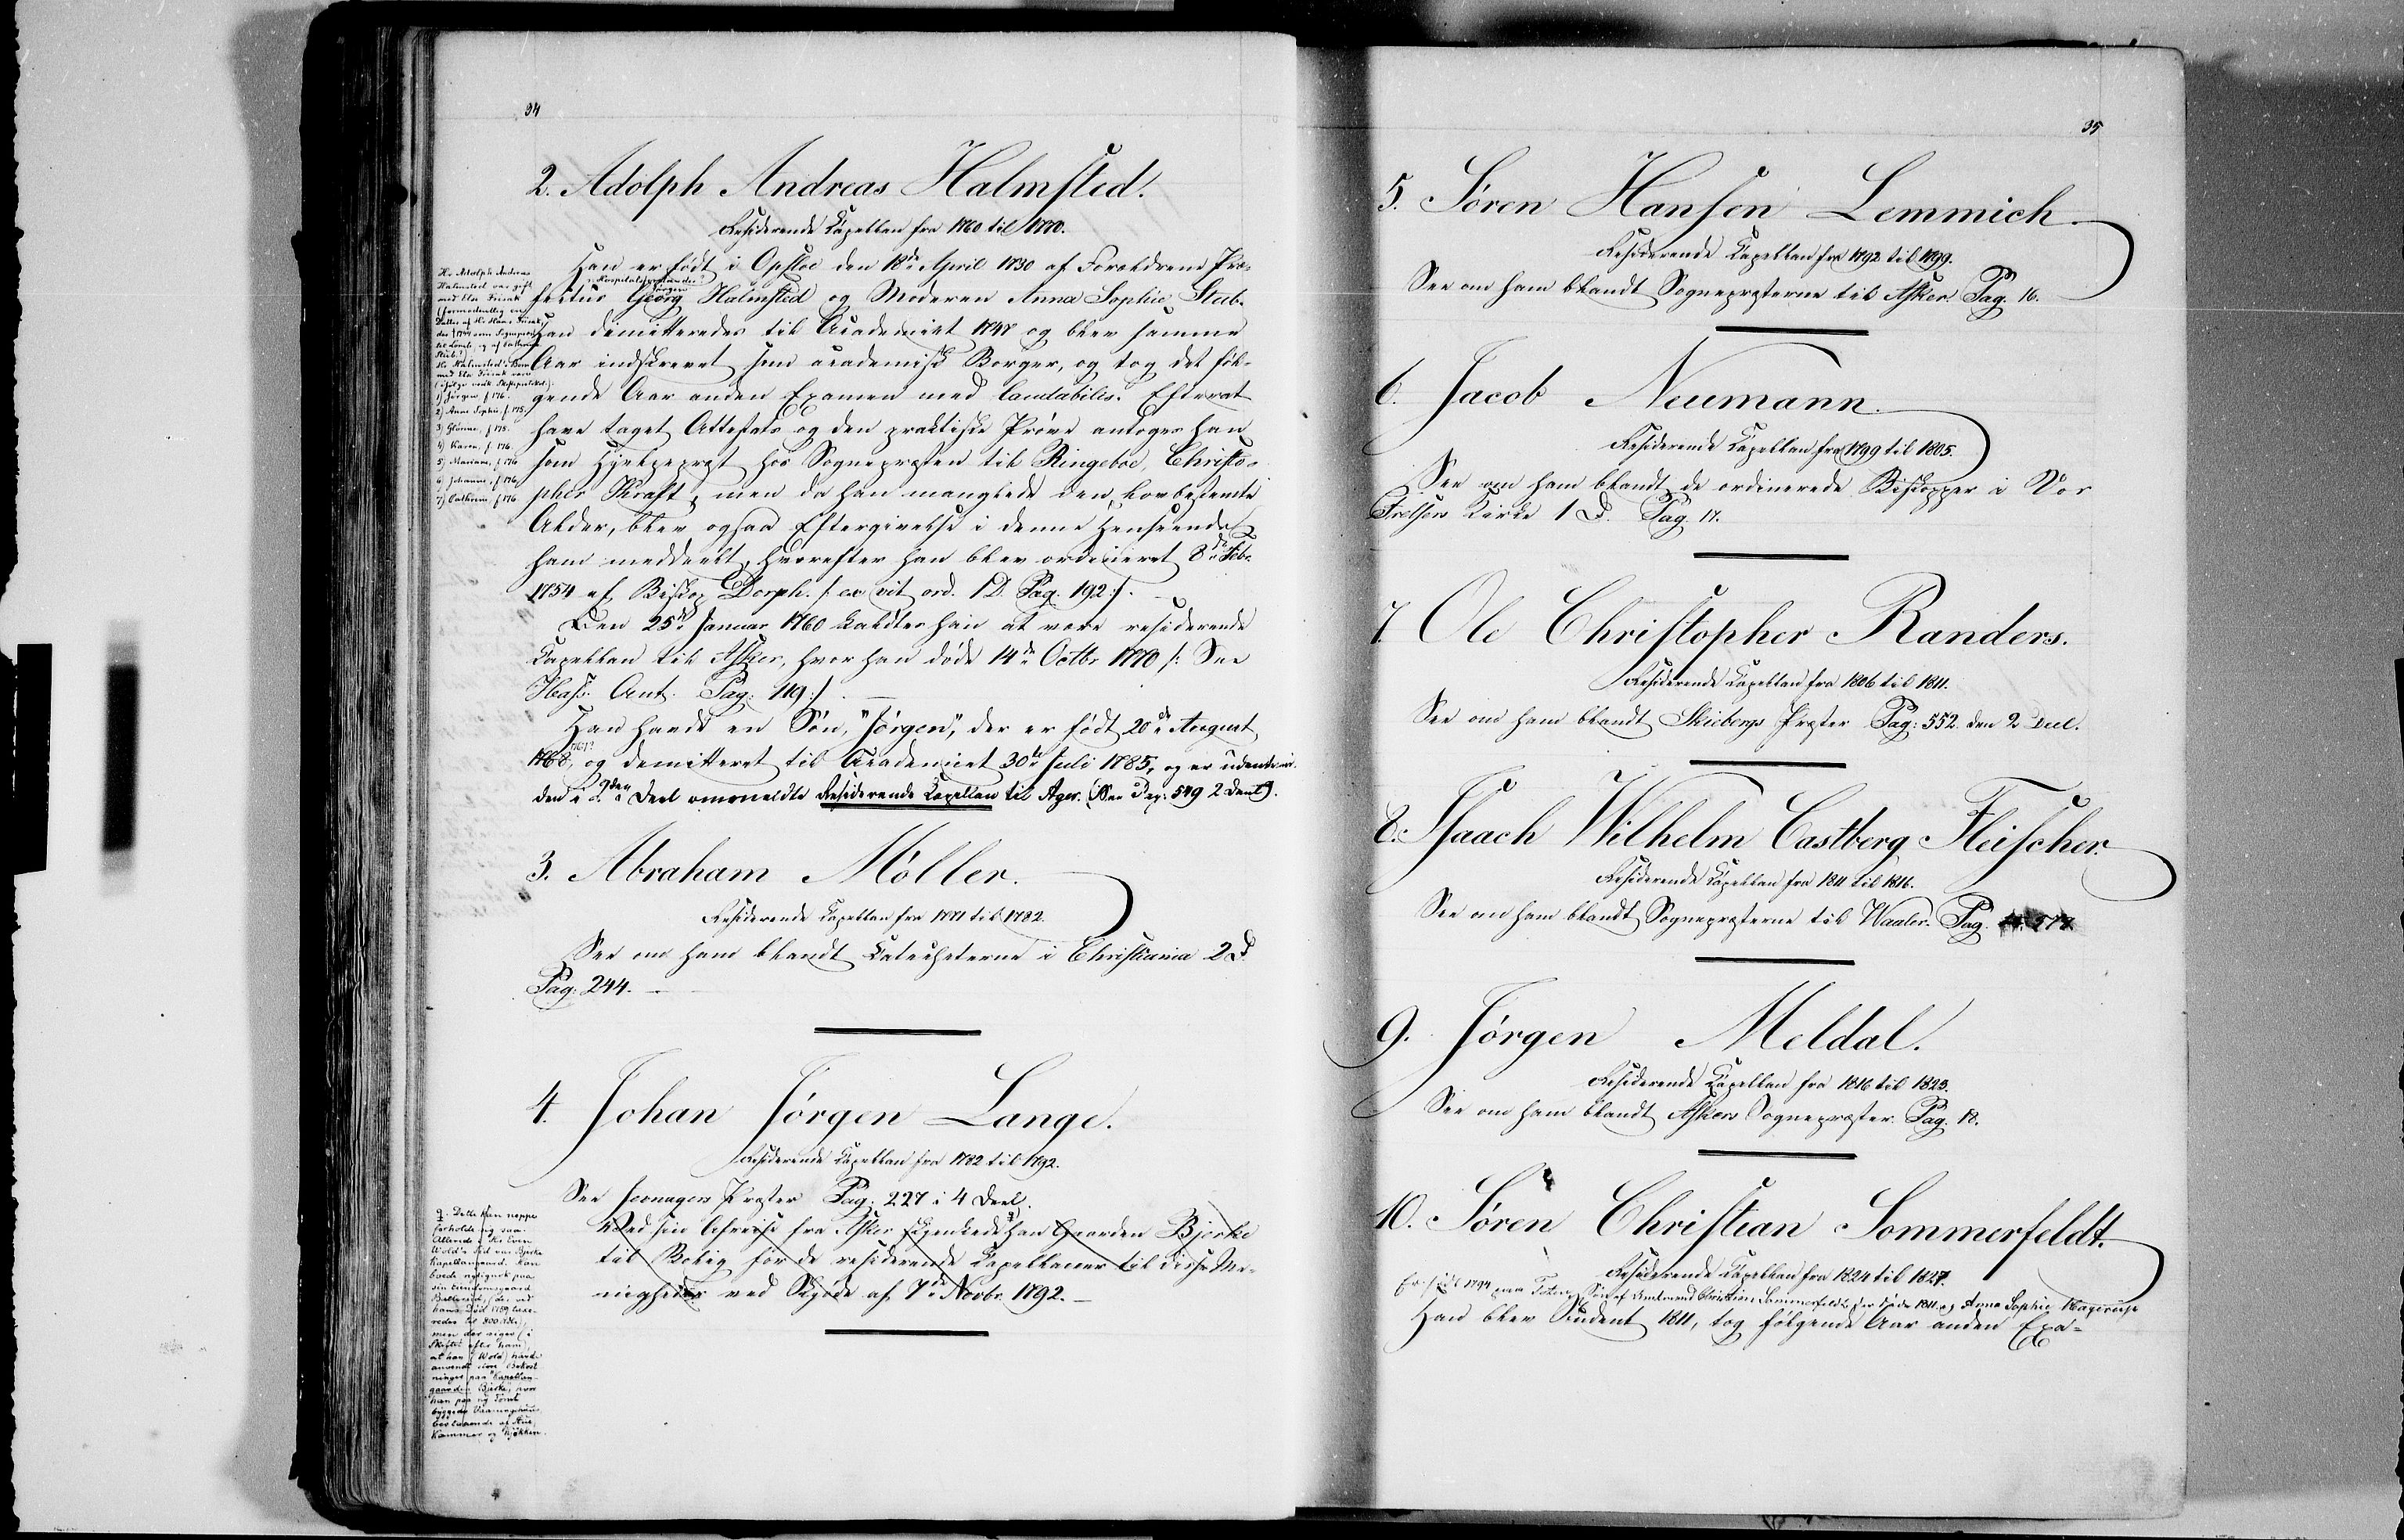 34
2. Adolph Andreas Halmsted.
Residerende Capellan fra 1760 til 1770.
Han er født i Opsloe den 18de April 1730 af Forældrene Præ-
Hospitalsforstander?
Jørgen
fectus Georg Halmsted og Moderen Anna Sophie Stub.
Han dimitteredes til Academiet 1747 og blev samme
Aar indskrevet som academisk Borger, og tog det føl-
gende Aar anden Examen med laudabilis. Efterat
have taget Attestats og den praktiske Prøve antoges han
som Hjelpepræst hos Sognepræsten til Ringeboe, Christo-
pher Kraft, men da han manglede den lovbestemte
Alder, blev ogsaa Eftergivelse i denne Henseende
ham meddeelt, hvorefter han blev ordineret 8de Febr.
1754 af Biskop Dorph. /: ex vit. ord. 1 D. Pag. 192 :/.
Den 25de Januar 1760 kaldtes han at være residerende
Capellan til Asker, hvor han døde 14de Octbr 1770 /: See
Hass. Ant. Pag: 119 :/. —
Han havde en Søn, "Jørgen", der er født 20de August
1768, og demitteret til Academiet 30te Juli 1785, og er udentvivl
den i 2den Deel ommeldte Residerende Capellan til Ager. (See Pag: 549 2 Deel).
Hr Adolph Andreas
Halmsted var gift
med Else Friisak
(formodentlig en
Datter af Hr Hans Friisak,
der som Sognepræst
til Lomb og af Cathrine
Stub?)
Hr Halmsteds Børn
med Else Friisak vare
(ifølge Skifteprotokol):
1) Jørgen f 176
2) Anne Sophie, f. 175
3) f 175.
4) Karen, f. 176
5) Mariane, f. 176
6) Johanne, f 176
7) Cathrine, f 176
3. Abraham Möller.
Residerende Capellan fra 1771 til 1782.
See om ham blandt Catecheterne i Christiania 2 D.
Pag: 244. —
4. Johan Jørgen Lange.
Residerende Capellan fra 1782 til 1792.
See Jevnagers Præster Pag: 227 i 4 Deel.
Ved sin Afreise fra Asker skjenkede han Gaarden Bjerke
til Bolig for de residerende Capellaner til disse Me-
nigheder ved Skjøde af 7de Novbr. 1792. —
Dette kan neppe
forholde sig saa.
Allerede i Hr Even
Wold's Tid var Bjerke
Kapellangaard. Han
boede rigtignok paa
sin Eiendomsgaard
(der ved
hans Død 1759 taxe-
redes til 800 rdlr),
men der siges (i
Skiftet efter ham),
at han (Wold) havde
anvendt store Bekost-
ninger paa Kapellan-
gaarden Bjerke, hvor
han paa ny Tomt
byggede Vaaningshuus
bestaaende af Stue,
Kammer og Kjøkken.
35
5. Søren Hansen Lemmich
Residerende Capellan fra 1792 til 1799.
See om ham blandt Sognepræsterne til Asker. Pag. 16.
6. Jacob Neumann
Residerende Capellan fra 1799 til 1805.
See om ham blandt de ordinerede Biskopper i Vor
Frelsers Kirke 1 D. Pag. 17.
7. Ole Christopher Randers.
Residerende Capellan fra 1806 til 1811.
See om ham blandt Skiebergs Præster Pag: 552 den 2 Deel.
8. Isaach Wilhelm Castberg Fleischer.
Residerende Capellan fra 1811 til 1816.
See om ham blandt Sognepræsterne til Waaler. Pag. 577
9. Jørgen Meldal.
Residerende Capellan fra 1816 til 1823.
See om ham blandt Askers Sognepræster. Pag. 18.
10. Søren Christian Sommerfeldt.
Residerende Capellan fra 1824 til 1827.
Er født 1794 paa Toten, Søn af Amtmand Christian Sommerfeldt, der døde 1811 og Anna Sophie Hagerup
Han blev Student 1811, tog følgende Aar anden Exa-